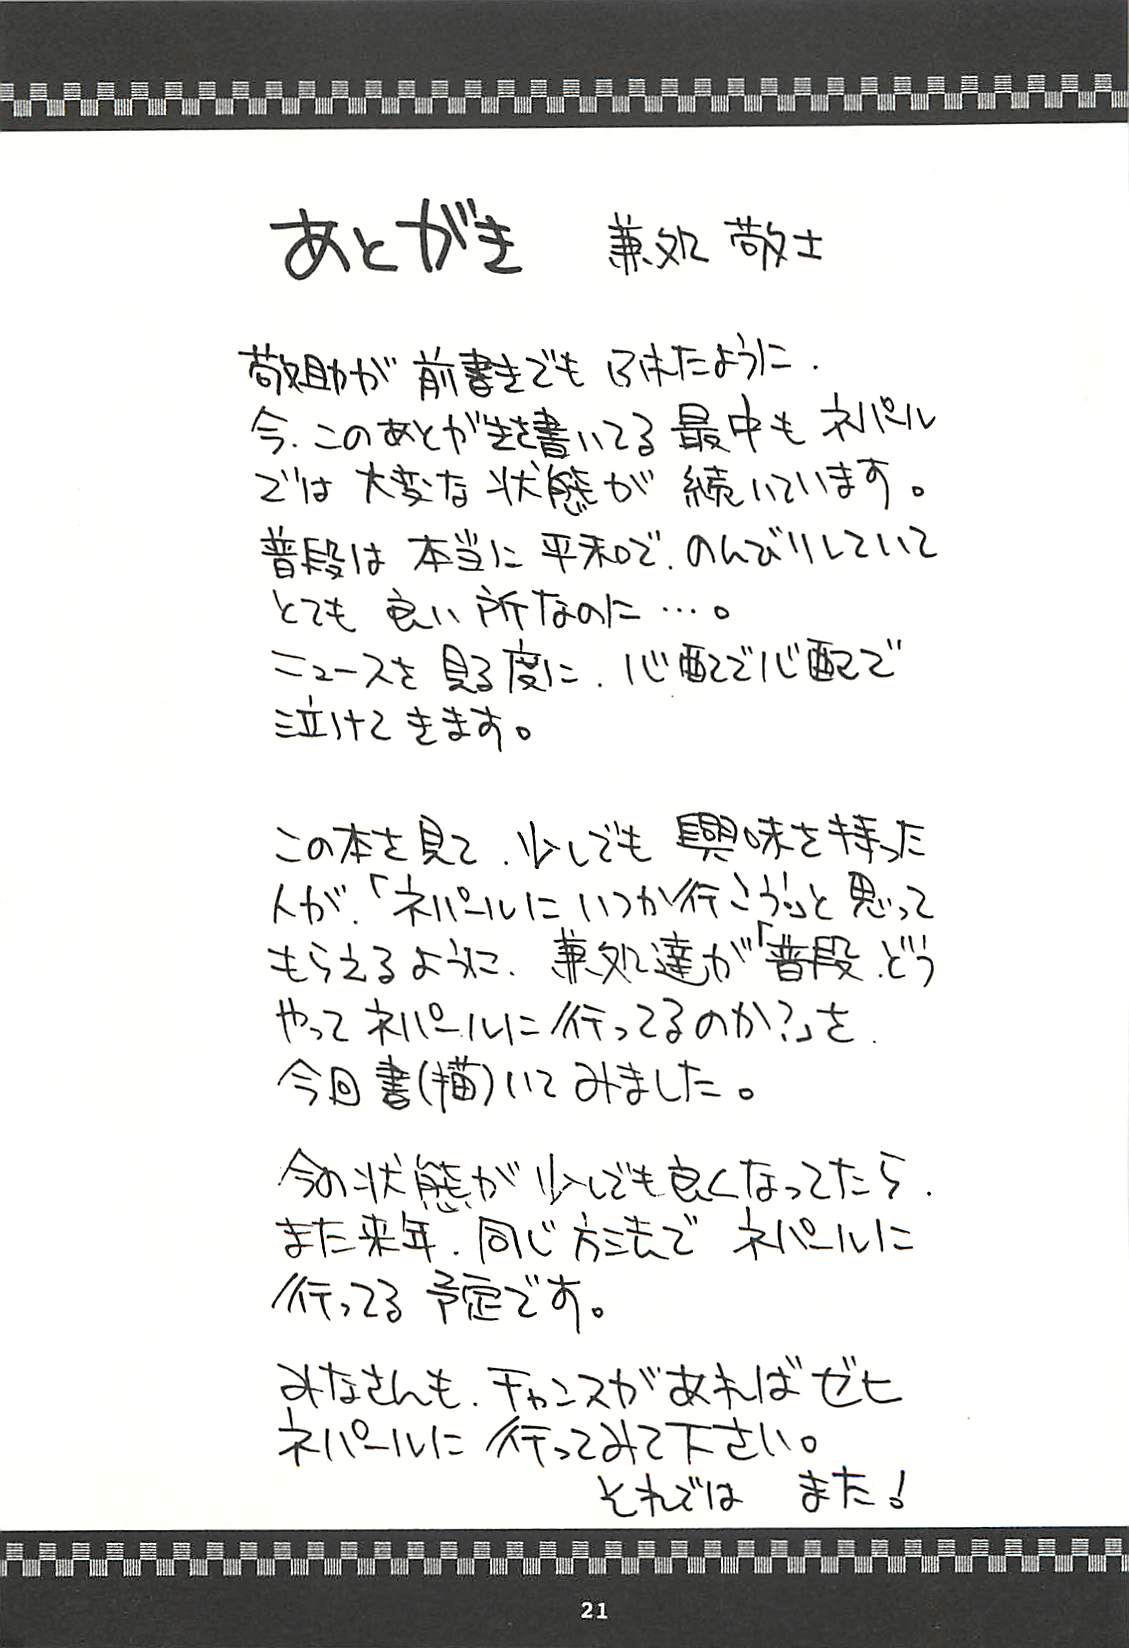 あとがき　兼処 敬士
敬助が 前書きでも ふれたように.
今.このあとがきを書いてる 最中も ネパール
では 大変な 状態が 続いています。
普段は 本当に 平和で.のんびりしていて
とても 良い 所なのに…。
ニュースを 見る度に.心配で心配で
泣けてきます。
この本を見て.少しでも 興味を持った
人が.「ネパールに いつか行こう」と 思って
もらえるように.兼処達が「普段.どう
やって ネパールに 行ってるのか?」を.
今回 書(描)いて みました。
今の状態が 少しでも良くなってたら.
また来年.同じ方法で ネパールに
行ってる 予定です。
みなさんも.チャンスが あれば ゼヒ
ネパールに 行ってみて下さい。
それでは　また!
21